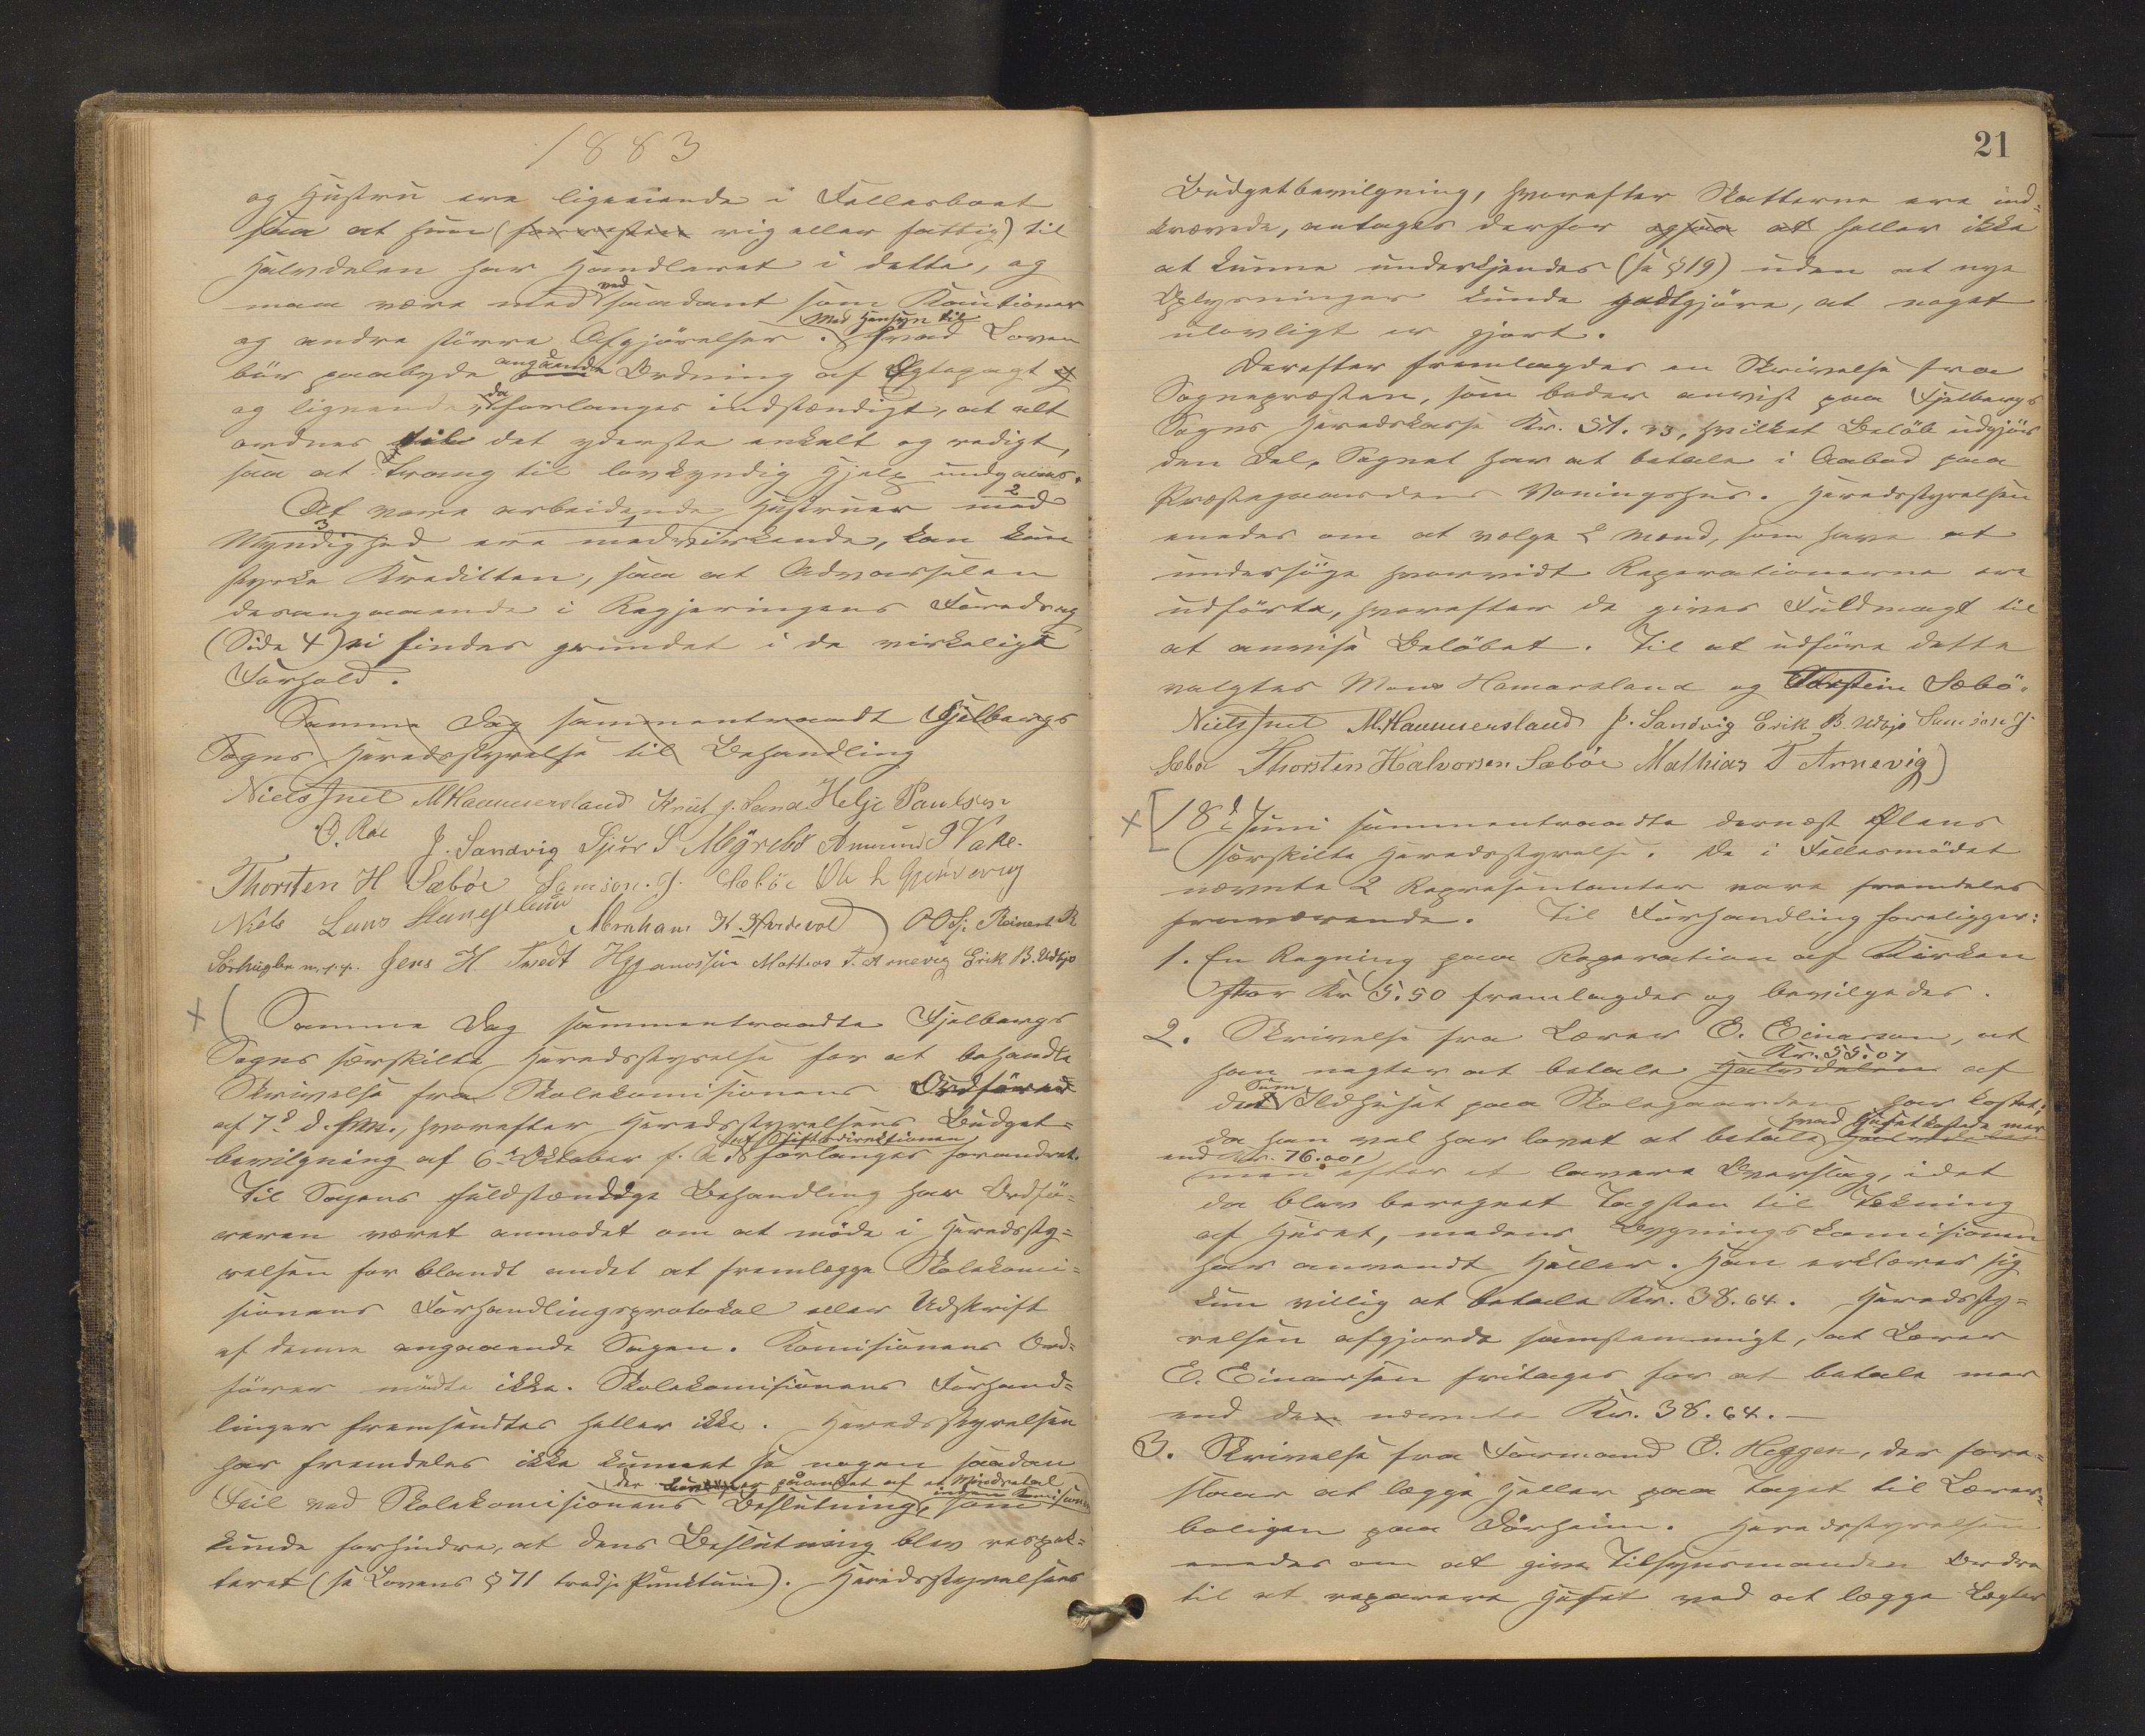 1883
og Hustru ere ligeeiende i Fellesboet
saa at hun (                    rig eller fattig) til
Halvdelen har Handleret i dette, og
maa være med ved saadant som Kautioner
og andre større Afgjörelser. Med Hensyn til hvad Loven
bör paabyde angaaende Ordning af Ægtepagt
og lignende, da forlanges indstændigt, at alt
ordnes til det yderste enkelt og redigt,
saa at Trang til lovkyndig Hjelp undgaaes.
At vore arbeidende Hustruer med 2
3 Myndighed ere 1 medvirkende, kan kun
styrke Kreditten, saa at Advarselen
desangaaende i Regjeringens Foredrag
(Side 4) ei findes grundet i de virkelige
Forhold.
Samme Dag sammentraadt Fjelbergs
Sogns Heredsstyrelse til Behandling
Niels Juel M Hammersland Knut J. Sand Helje Paulsen
O. Røe J. Sandvig Sjur S Mÿrebø Amund P Vake.
Thorsten H Sæböe Samson. J. Sæböe Ole L
Niels Larss Abraham K. O. O. S: Reinert R
m. f. p. Jens H. Tvedt Mathias T. Arnevig Erik B. Udbjo
Samme Dag sammentraadte Fjelbergs
Sogns særskilte Heredsstyrelse for at behandle
Skrivelse fra Skolekomisionens Ordförer
af 7de d. M., hvorefter Heredsstyrelsens Budget-
bevilgning af 6te Oktober f. A. af Stiftsdirektionen forlanges forandret.
Til Sagens fuldstændige Behandling har Ordfö-
reren været anmodet om at möde i Heredssty-
relsen for blandt andet at fremlægge Skolekomi-
sionens Forhandlingsprotokol eller Udskrift
af denne angaaende Sagen. Komisionens Ord-
förer mödte ikke. Skolekomisionens Forhand-
linger fremsendtes heller ikke. Heredsstyrelsen
har fremdeles ikke kunnet se nogen saadan
der er påanket af et Mindretal inden Komisionen
Feil ved Skolekomisionens Beslutning, som
kunde forhindre, at dens Beslutning blev respek-
teret (se Lovens § 71 tredje Punktum). Heredsstyrelsens
21
Budgetbevilgning, hvorefter Skatterne ere ind-
krævede, antages derfor ogsaa at heller ikke
at kunne underkjendes (se § 19) uden at nye
Oplysninger kunde godtgjöre, at noget
ulovligt er gjort.
Derefter fremlagdes en Skrivelse fra
Sognepræsten, som beder anvist paa Fjelbergs
Sogns Heredskasse Kr. 51.23, hvilket Belöb udgjör
den Del, Sognet har at betale i Aabod paa
Præstegaardens Vaaningshus. Heredsstyrelsen
enedes om at velge 2 Mænd, som have at
undersöge hvorvidt Reparationerne ere
udförte, hvorefter de gives Fuldmagt til
at anvise Belöbet. Til at udföre dette
valgtes Mons Hamarsland og Torstein Sæbö.
Niels Juel M. Hammersland J. Sandvig Erik B. Udbjo Samson J.
Sæbø Thorsten Halvorsen Sæböe Mathias T Arnevig)
18de Juni sammentraadte dernæst Ølens
særskilte Heredsstyrelse. De i Fellesmödet
nævnte 2 Representanter vare fremdeles
fraværende. Til Forhandling foreligger:
1. En Regning paa Reparation af Kirken
stor Kr 5.50 fremlagdes og bevilgedes.
2. Skrivelse fra Lærer E. Einarsen, at
han negter at betale Halvdelen Kr. 55.07 af
den Sum Ildhuset paa Skolegaarden har kostet;
da han vel har lovet at betale hvad Huset kostede mer
end Kr. 76.00,
men efter et lavere Overslag, idet
da blev beregnet Tagsten til Tekning
af Huset, medens Bygningskomisionen
har anvendt Heller. Han erklærer sig
kun villig at betale Kr. 38.64. Heredssty-
relsen afgjorde samstemmigt, at Lærer
E. Einarsen fritages for at betale mer
end de nævnte Kr. 38.64.—
3. Skrivelse fra Formand O. Heggen, der fore-
slaar at legge Heller paa Taget til Lærer-
boligen paa Dörheim. Heredsstyrelsen
enedes om at give Tilsynsmanden Ordre
til at reparere Huset ved at legge Legter